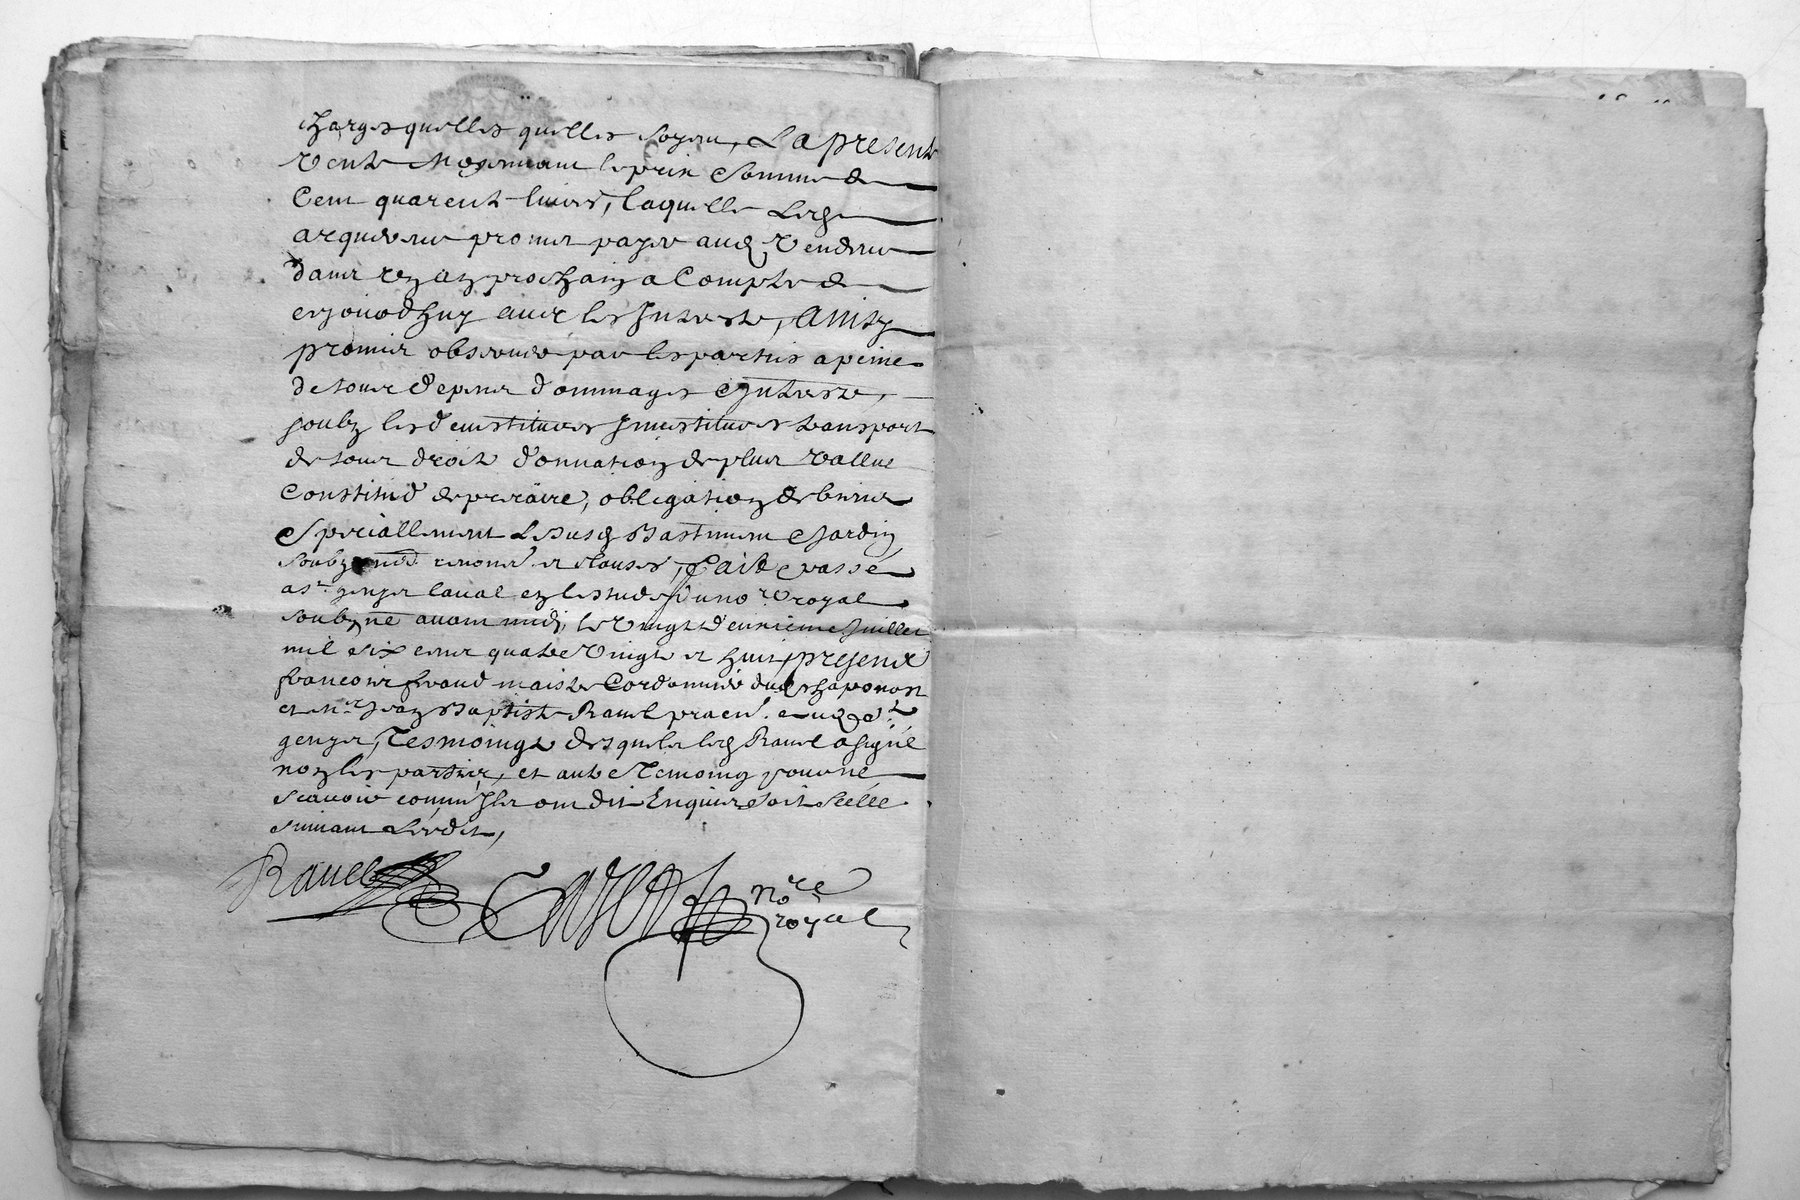 charges quelles quelles soyent, La presente
vente moyennant le prix & somme de
Cent quarente livres, laquelle led
acquereur promet payer aud vendeur
dans ung an prochain a Compter de
cejourdhuy avec les Interests, Ainsy
promis observer par les parties a peine
de tous despens dommages & Interests,
soubz les devestitures Investitures transport
de tous droits donnation de plus vallue
Constitué de precaire, obligation de biens
& speciallement lesusd Bastiment & Jardin
soubz renonce et clauses, faict & passé
a St genys laval en lestude du nore royal
soubzne avant midi, le vingt deuxieme Juillet
mil six cens quatre vingt et huit, presens
francois maistre Cordonnier dud chaponost
et Mr Jean Baptiste Ravel praen. aud St
genys, Tesmoings desquels led Ravel a signé
non les parties, et autre Temoing pour ne
scavoir comm'Ils ont dit Enquis & soit scellé
suivant Ledit,
Ravel nore
royal